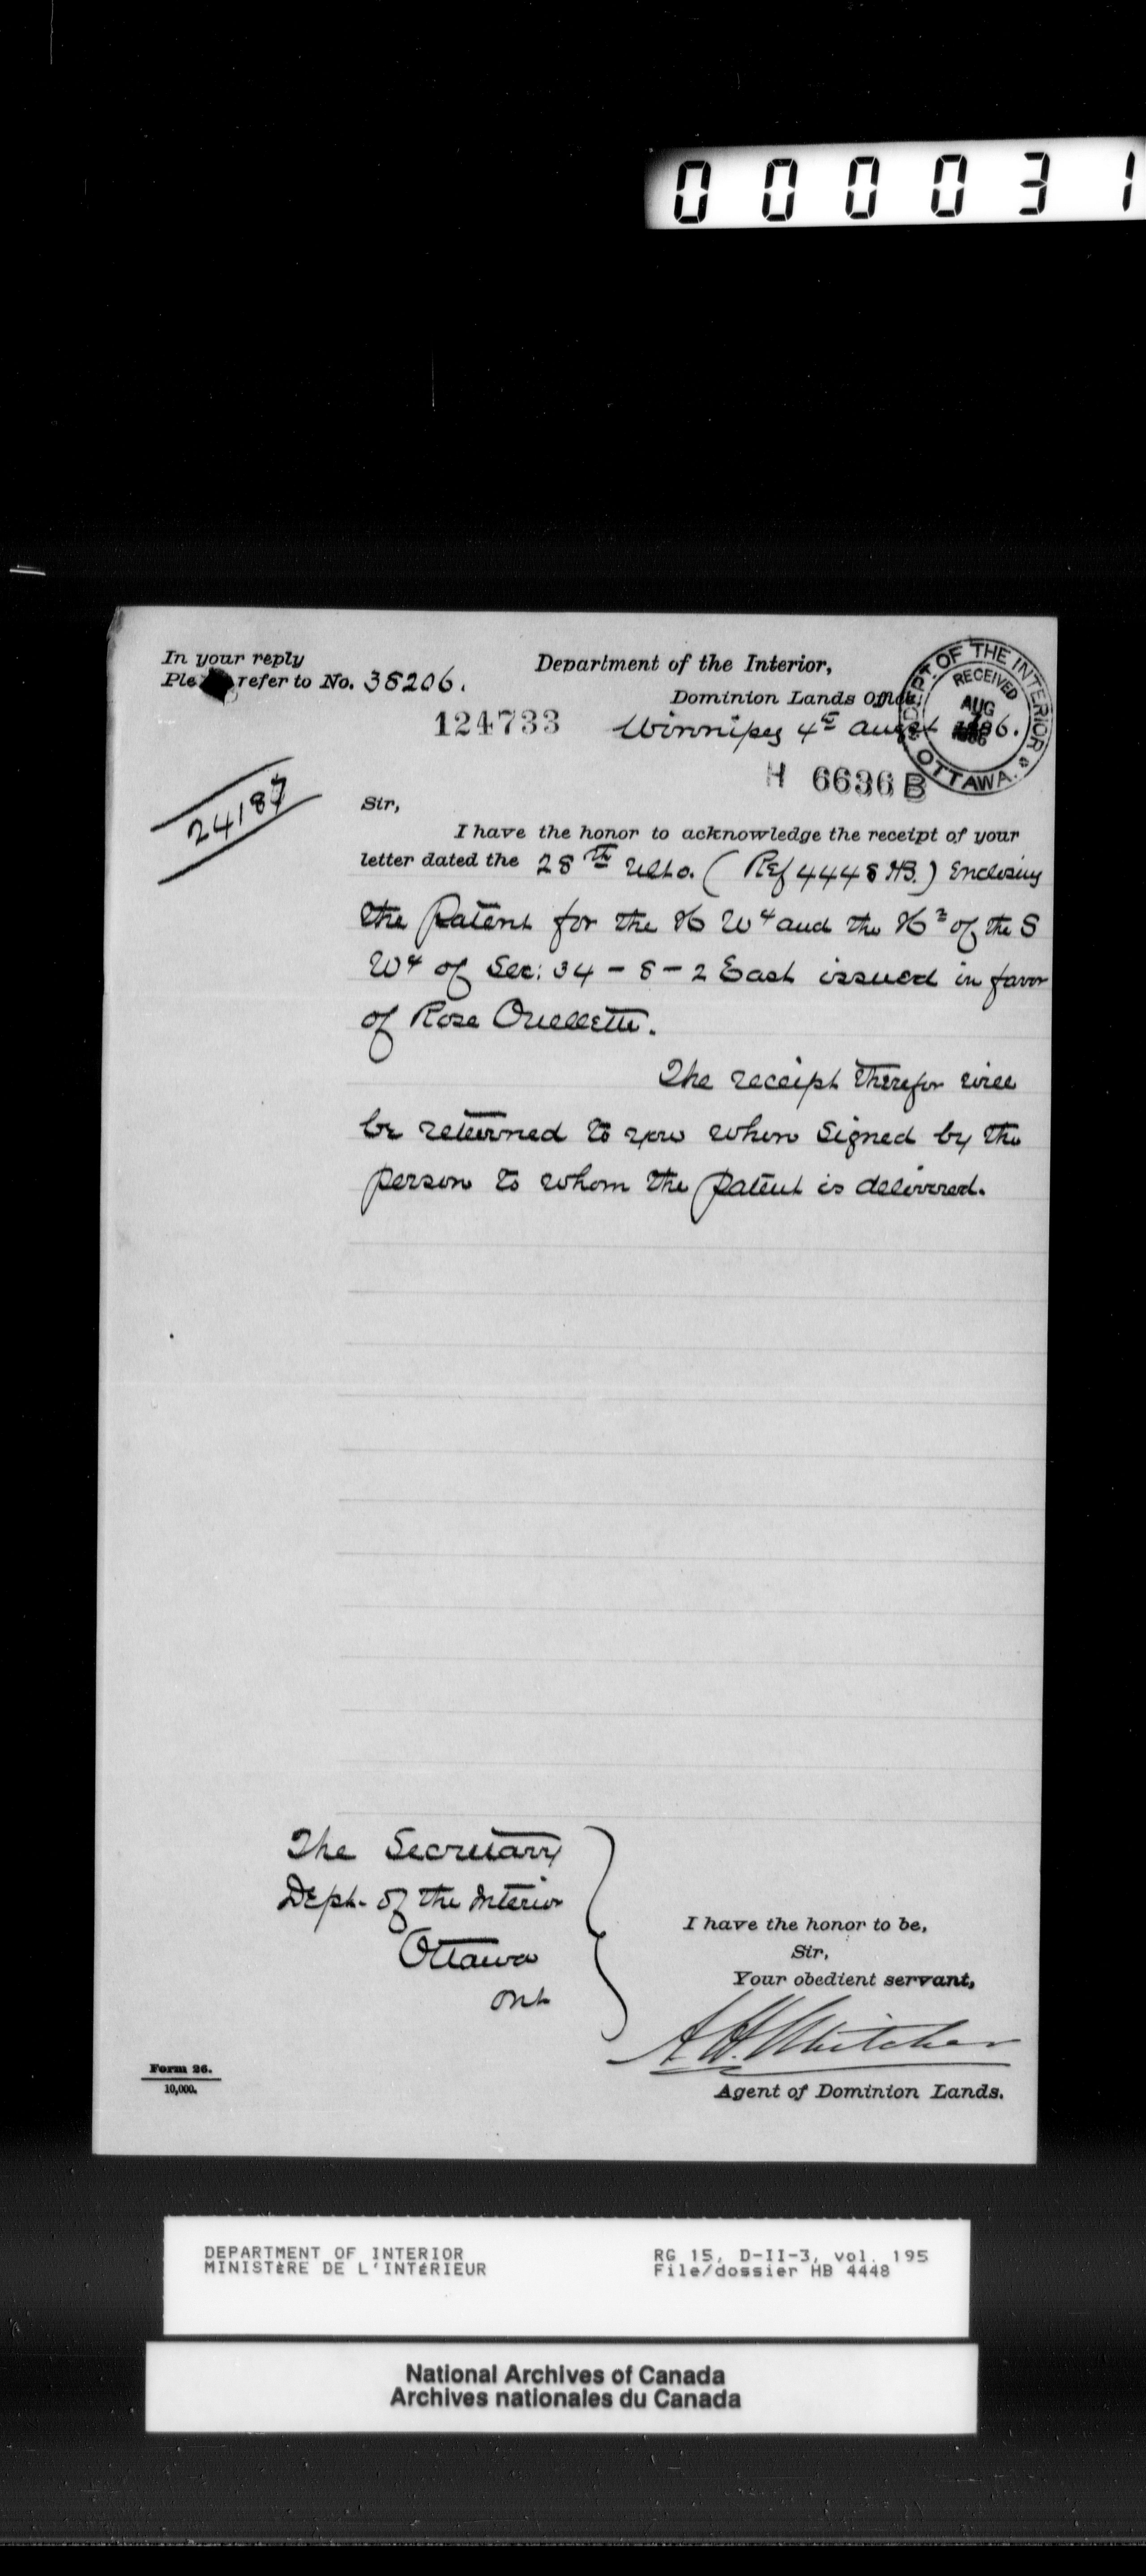 000031
In your reply
Please refer to No. 38206.
Department of the Interior,
Dominion Lands Office,
124733
Winnipeg 4th August 1886.
DEPT. OF THE INTERIOR
RECEIVED
AUG
1886
OTTAWA.
H 6636 B
24187
Sir,
I have the honor to acknowledge the receipt of your
letter dated the 28th Ulto. (Ref 4448 HB.) Enclosing
the Patent for the N W4 and the N2 of the S
W4 of Sec: 34 - 8 - 2 East issued in favor
of Rose Ouellette.
The receipt therefor will
be returned to you when signed by the
person to whom the patent is delivered.
The Secretary
Dept. of the Interior
Ottawa
Ont
I have the honor to be,
Sir,
Your obedient servant,
A H Whitcher
Agent of Dominion Lands.
Form 26.
10,000.
DEPARTMENT OF INTERIOR
MINISTÈRE DE L'INTÉRIEUR
RG 15, D-II-3, vol. 195
File/dossier HB 4448
National Archives of Canada
Archives nationales du Canada